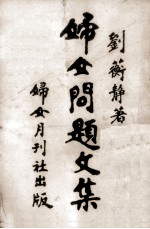 劉蘅靜著
婦女問題文集
婦女月刊社出版